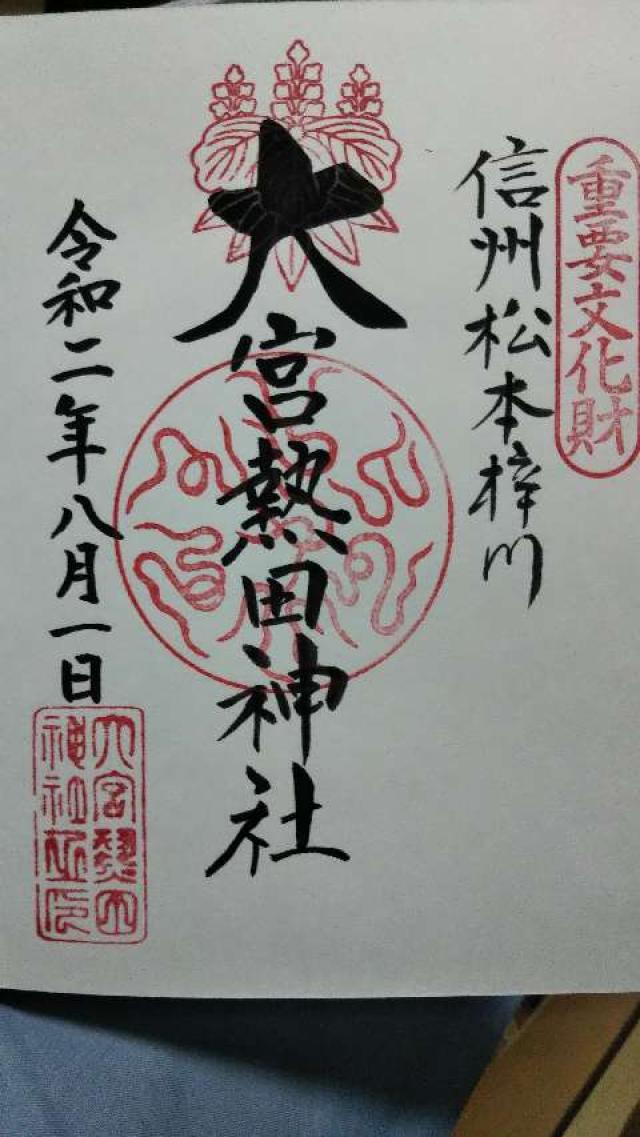 重要文化財
信州松本梓川
大宮熱田神社
令和二年八月一日
大宮熱田
神社之印